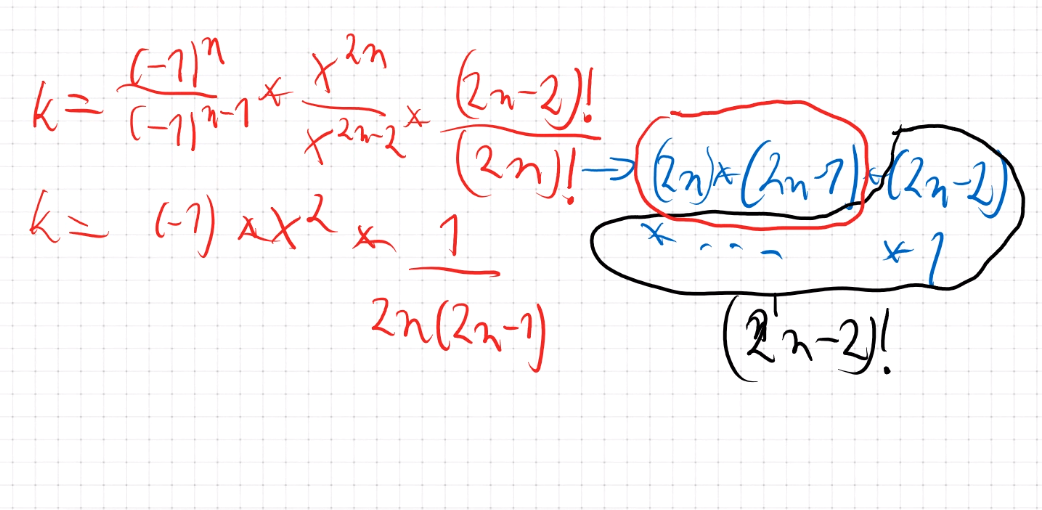 k = (-1)^n / (-1)^{n-1} * x^{2n} / x^{2n-2} * (2n-2)! / (2n)! → (2n)*(2n-1)*(2n-2)
* - - - * 1
k = (-1) * x^2 * 1 / 2n(2n-1)
(2n-2)!